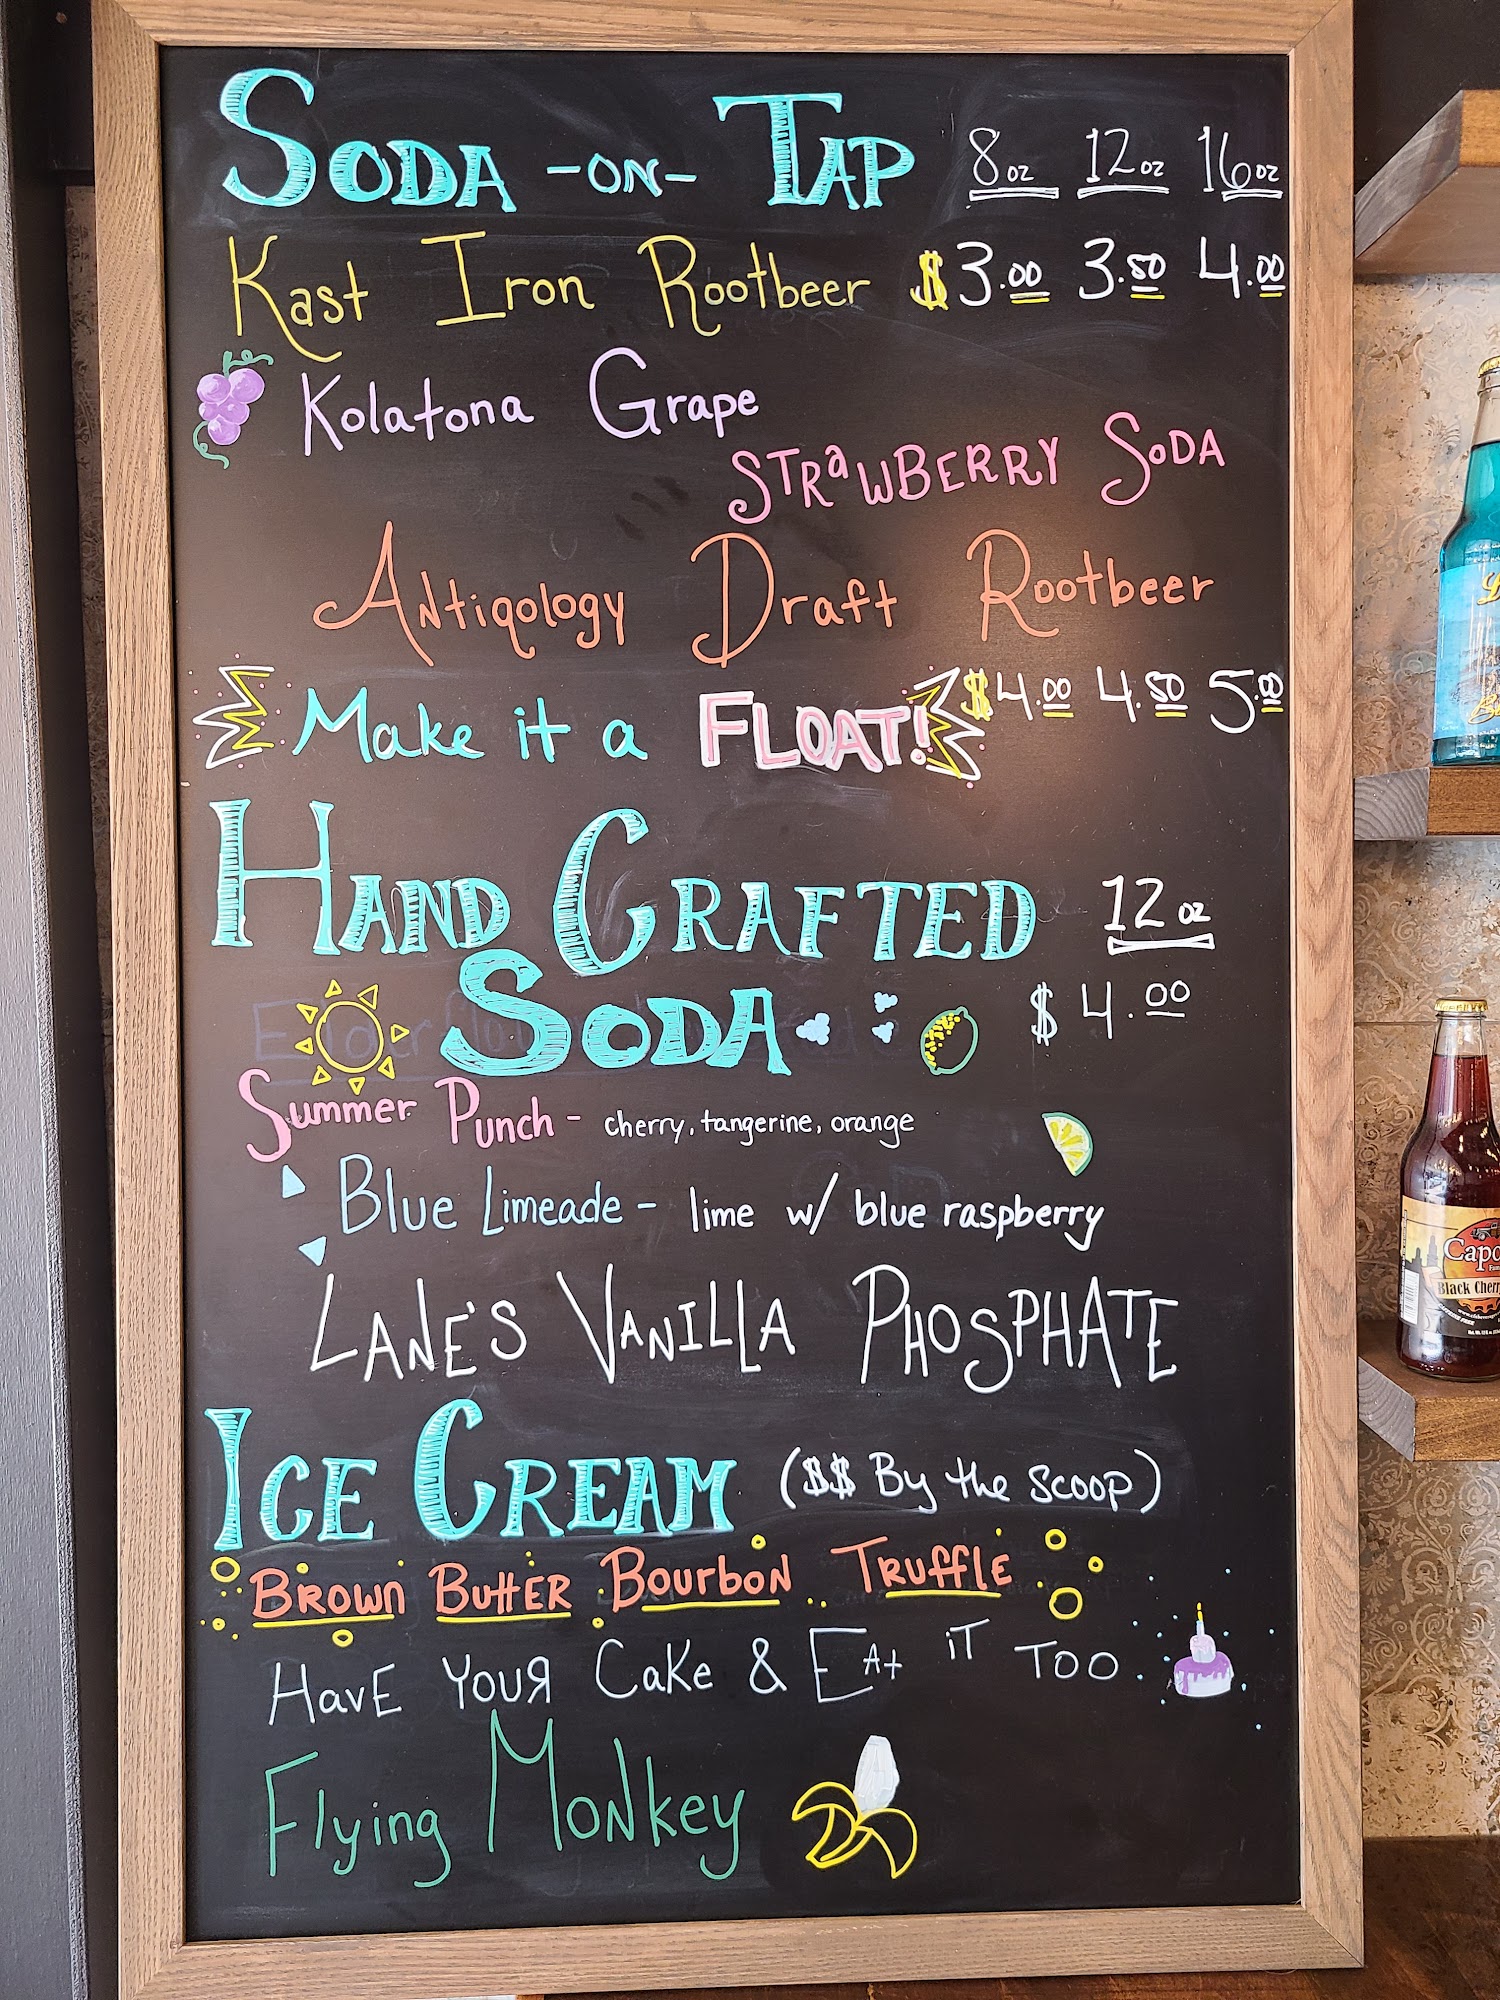 SODA -ON- TAP 8oz 12oz 16oz
Kast Iron Rootbeer $3.00 3.50 4.00
Kolatona Grape
STRaWBERRY SODA
ANtiqology Draft Rootbeer
Make it a FLOAT! $4.00 4.50 5.00
HAND CRAFTED 12oz
SODA $4.00
Summer Punch - cherry, tangerine, orange
Blue Limeade - lime w/ blue raspberry
LANE'S VANILLA PHOSPHATE
ICE CREAM ($$ By the scoop)
BROWN BUttER BOURBON TRUFFLE
HavE YOUR CaKe & EAt iT TOO
Flying MoNkey
Black Cherr